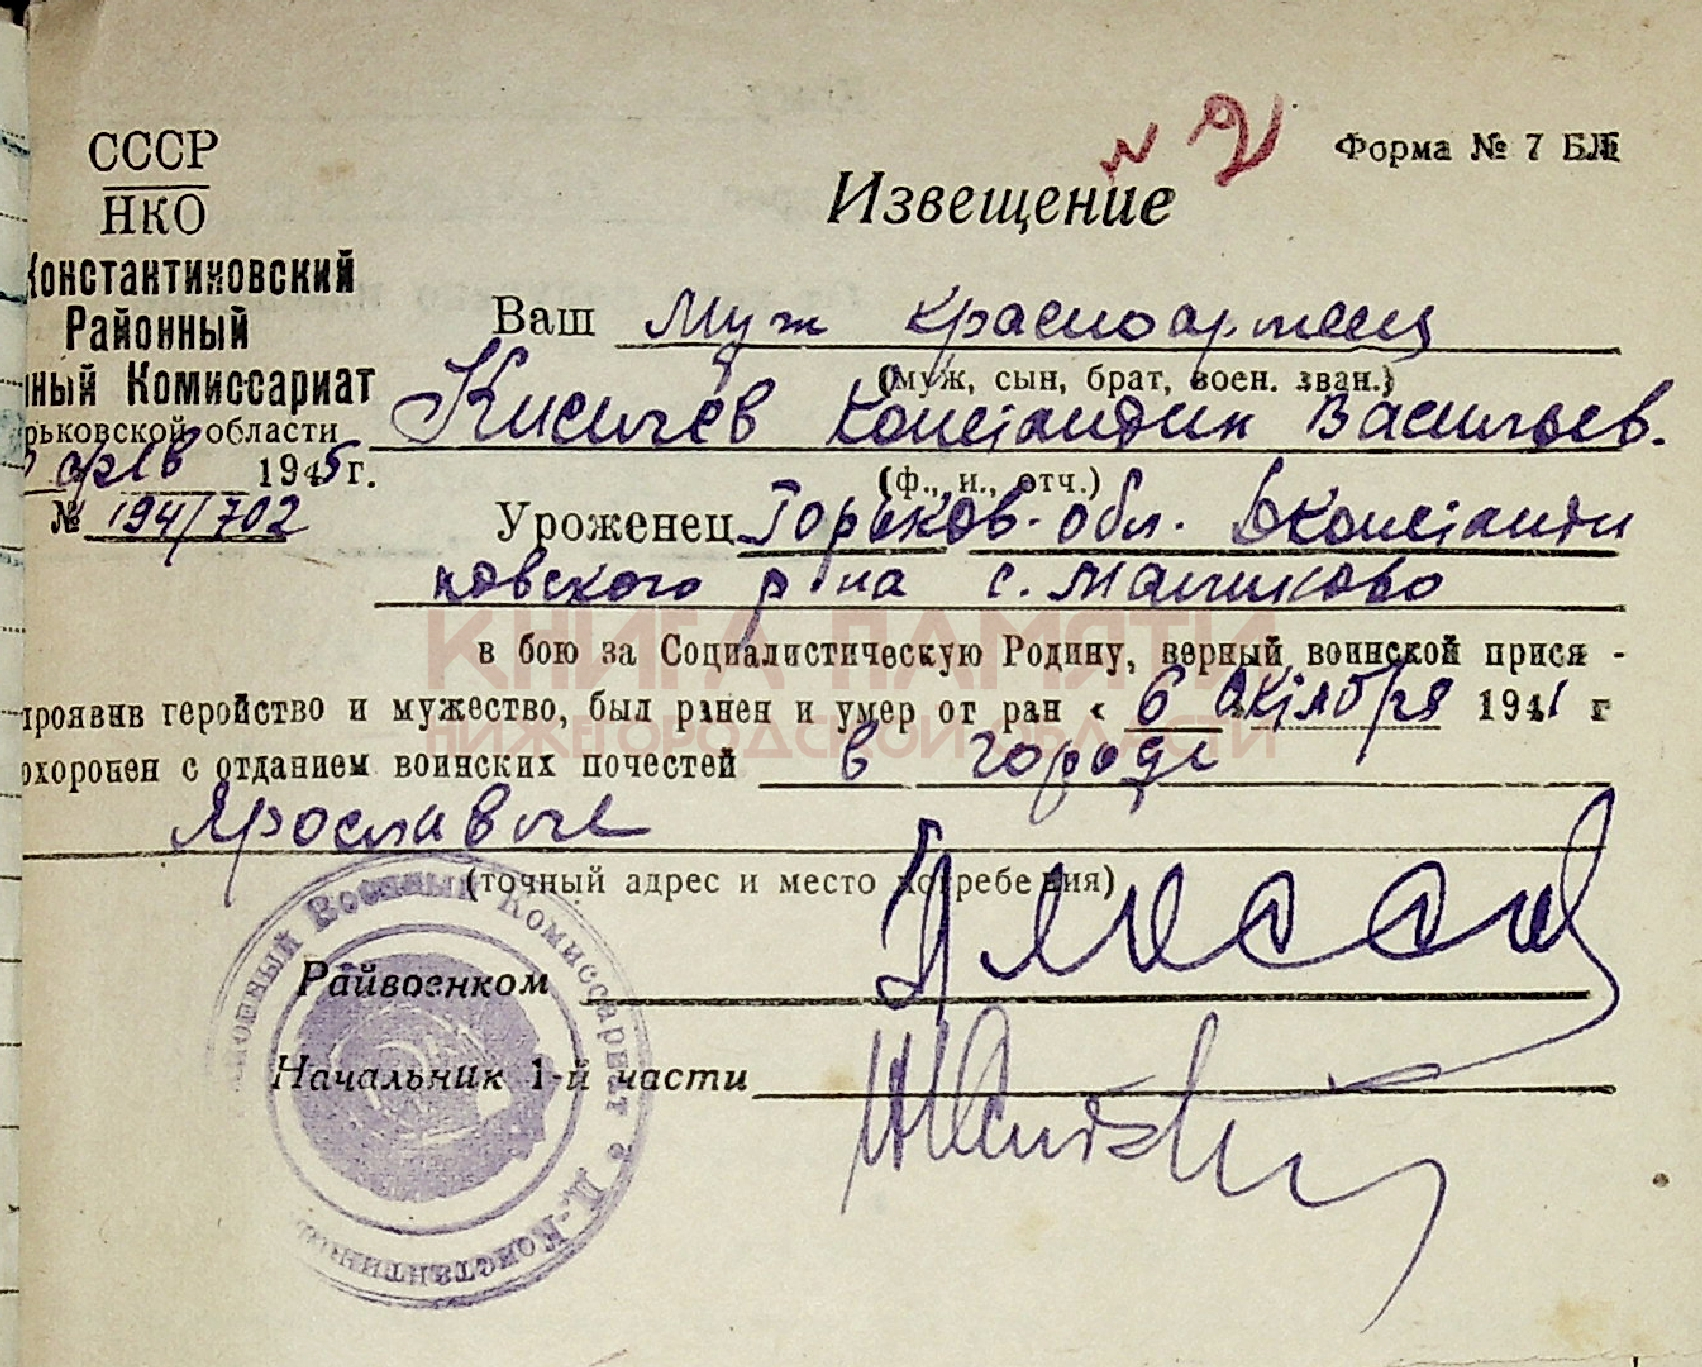 № 21
Форма № 7 БЛ
СССР
НКО
Извещение
Константиновский
Районный
ный Комиссариат
рьковской области
фев 1945 г.
№ 194/702
Ваш муж красноармеец
(муж, сын, брат, воен. зван.)
Киселев Константин Васильев.
(ф., и., отч.)
Уроженец Горьков. обл. Дконстанти
новского р-на с.
в бою за Социалистическую Родину, верный воинской прися -
проявив геройство и мужество, был ранен и умер от ран « 6 октября 1941 г
охоронен с отданием воинских почестей в городе
Ярославле
(точный адрес и место погребения)
Райвоенком
Начальник 1-й части
Военный Комиссариат
Д.-Константинов
КНИГА ПАМЯТИ
НИЖЕГОРОДСКОЙ ОБЛАСТИ